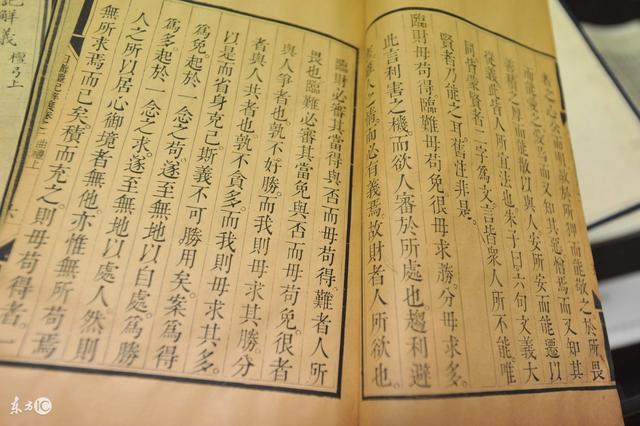 者之心安而用故於所狎而能敬之於所畏
而能愛之愛焉而又知其惡憎焉而又知其
善積而能散以與人安所安而能遷以
從義此皆人所宜法也朱子曰六句文義大
同皆蒙賢者二字為文言皆衆人所不能唯
賢者乃能之耳舊注非是。
臨財毋苟得。臨難毋苟免很毋求勝。分毋求多。
此言利害之機。而欲人審於所處也。趨利避
雖人情而必有義焉。故財者人所欲也。
臨財必審其當得與否而毋苟得。難者人所
畏也臨難必審其當免與否而毋苟免。很者
與人爭者也。孰不好勝。而我則毋求其勝。分
者與人共者也。孰不貪多。而我則毋求其多。
以是而省身克己。斯義不可勝用矣。案為得
為免起於一念之苟。遂至無地以自處。為勝
為多。起於一念之求。遂至無地以處人。然則
人之所以居心御境者無他。亦惟無所苟焉
無所求焉而已矣。積而充之。則毋苟得者。一
日講禮記解義 卷二 曲禮上
記解義 檀弓上
东方IC